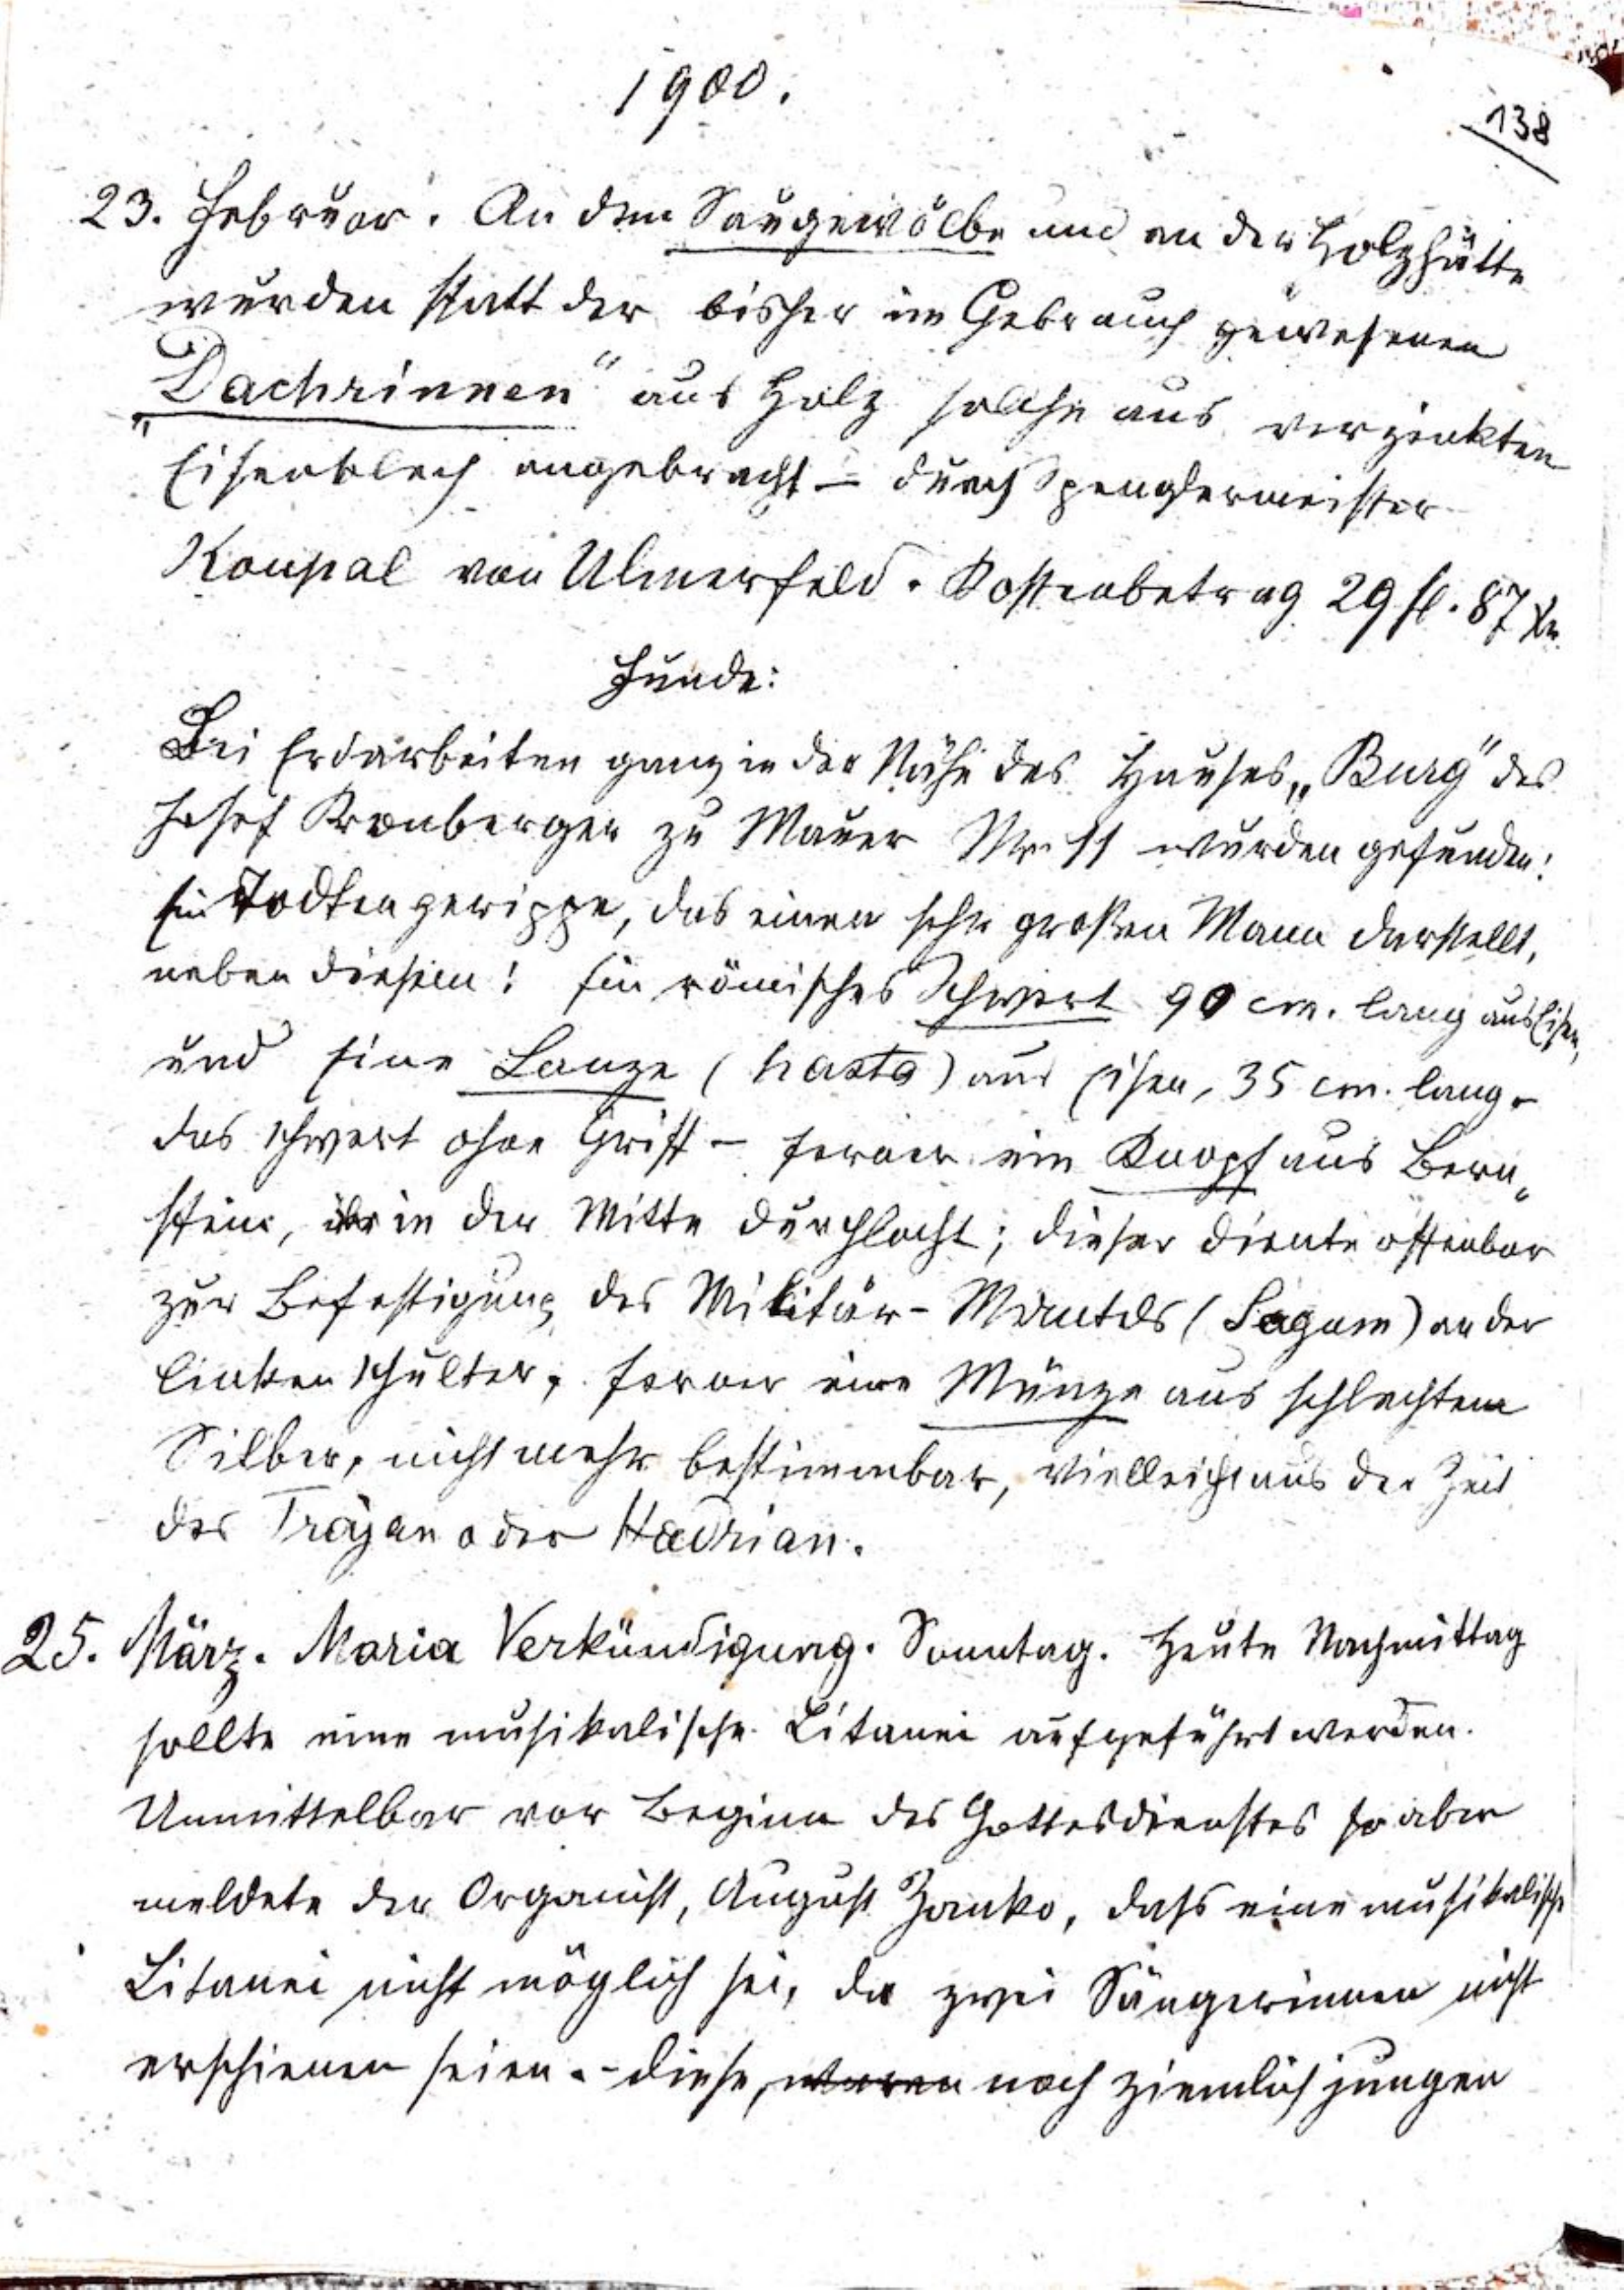 1900.
138
23. Februar. An dem Saugewölbe und an der Holzhütte
wurden statt der bisher im Gebrauch gewesenen
„Dachrinnen“ aus Holz solche aus verzinkten
Eisenblech angebracht – durch Spenglermeister
Koupal von Ulmerfeld. Kostenbetrag 29 fl. 87 kr.
Funde:
Bei Erdarbeiten ganz in der Nähe des Hauses „Burg“ des
Josef Kronberger zu Mauer Nr. 11 wurden gefunden:
Ein Todtengerippe, das einen sehr großen Mann darstellt,
neben diesem: Ein römisches Schwert 90 cm. lang aus Eisen,
und eine Lanze (hasta) aus Eisen, 35 cm. lang.
das Schwert ohne Griff – ferner ein Knopf aus Bern„
stein, in der Mitte durchlocht; dieser diente offenbar
zur Befestigung des Militär-Mantels (Sagum) an der
linken Schulter, ferner eine Münze aus schlechtem
Silber, nicht mehr bestimmbar, vielleicht aus der Zeit
des Trajan oder Hadrian.
25. März. Maria Verkündigung. Sonntag. Heute Nachmittag
sollte eine musikalische Litanei aufgeführt werden.
Unmittelbar vor Beginn des Gottesdienstes so aber
meldete der Organist, August Zanko, daß eine musikalische
Litanei nicht möglich sei, da zwei Sängerinnen nicht
erschienen seien. – diese, waren noch ziemlich jungen